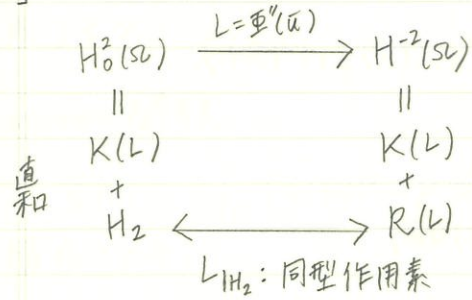 L=Φ''(ū)
H₀²(Ω) → H⁻²(Ω)
|| ||
K(L) K(L)
直和 + +
H₂ ↔ R(L)
L|H₂ : 同型作用素